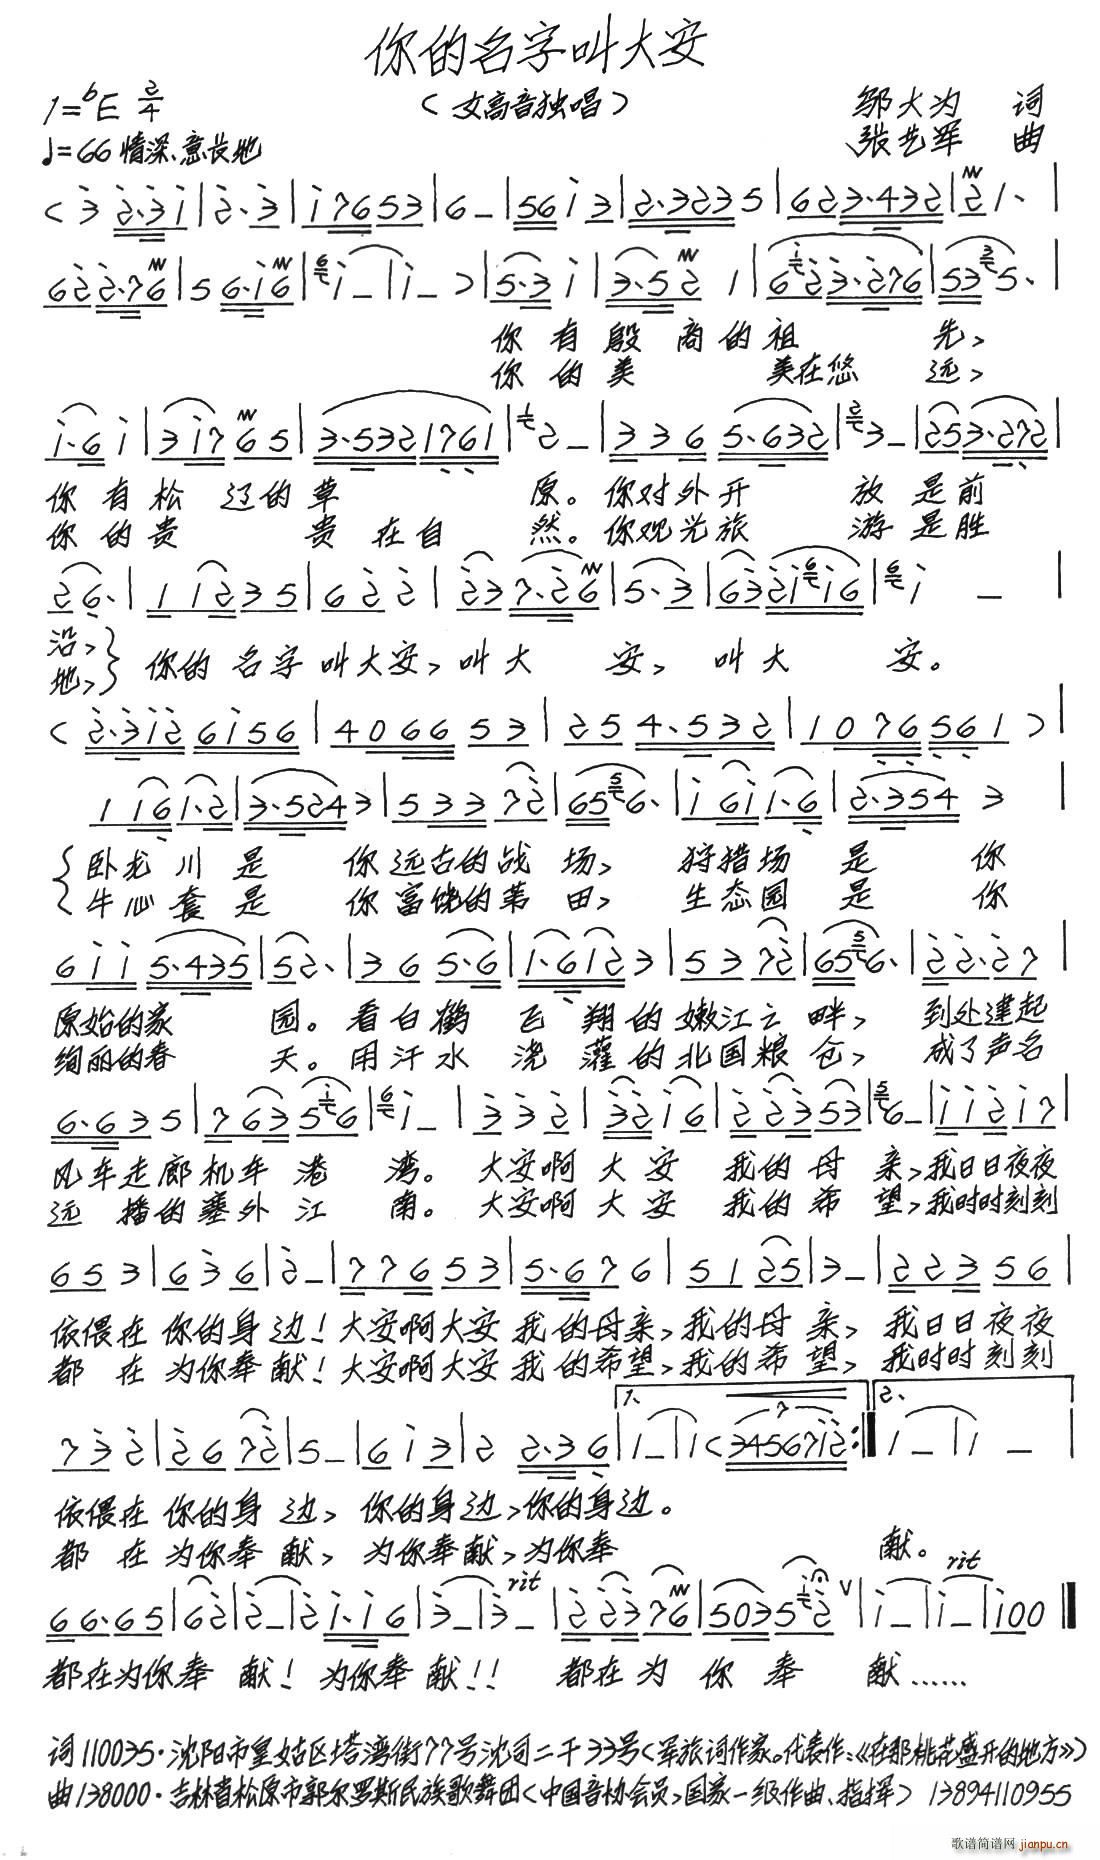 你的名字叫大安
1=♭E 2/4
（女高音独唱）
邹大为 词
♩=66 情深、意长地
张艺军 曲
(3 2·3 1|2·3|1 7 6 5 3|6 –|5 6 1 3|2·3 2 3 5|6 2 3·4 3 2|2 1·|
6 2 2·7 6|5 6·1 6|1 –|1 –)|5·3 1|3·5 2 1|6 2 3·2 7 6|5 3 5·|
你 有 殷 商 的 祖 先,
你 的 美 美 在 悠 远,
1·6 1|3 1 7 6 5|3·5 3 2 1 7 6 1|2 –|3 3 6 5·6 3 2|3 –|2 5 3·2 7 2|
你 有 松 辽 的 草 原。你 对 外 开 放 是 前
你 的 贵 贵 在 自 然。你 观 光 旅 游 是 胜
2 6·|1 1 2 3 5|6 2 2|2 3 7·2 6|5·3|6 3 2 1 1 6|1 –|
沿,
地,
你的 名字 叫大安, 叫大 安, 叫大 安。
(2·3 1 2 6 1 5 6|4 0 6 6 5 3|2 5 4·5 3 2|1 0 7 6 5 6 1)|
1 1 6 1·2|3·5 2 4 3|5 3 3 7 2|6 5 6·|1 6 1 1·6|2·3 5 4 3|
卧龙 川 是 你 远古的战 场, 狩猎场 是 你
牛心 套 是 你 富饶的苇 田, 生态园 是 你
6 1 1 5·4 3 5|5 2·|3 6 5·6|1·6 1 2 3|5 3 7 2|6 5 6·|2 2·2 7|
原始的家 园。看白鹤 飞 翔 的 嫩江云 畔, 到处建起
绚丽的春 天。用汗水 浇 灌 的 北国粮 仓, 成了声名
6·6 3 5|7 6 3 5 6|1 –|3 3 2|3 2 1 6|2 2 3 5 3|6 –|1 1 2 1 7|
风车走廊机车 港 湾。大安啊 大 安 我的 母 亲,我日日夜夜
远 播的塞外 江 南。大安啊 大 安 我的 希 望,我时时刻刻
6 5 3|6 3 6|2 –|7 7 6 5 3|5·6 7 6|5 1 2 5|3 –|2 2 3 5 6|
依偎在 你的身 边!大安啊大安 我的母亲,我的母 亲, 我日日夜夜
都 在 为你奉 献!大安啊大安 我的希望,我的希 望, 我时时刻刻
7 3 2|2 6 7 2|5 –|6 1 3|2 2·3 6|1. 1 –|1 (3 4 5 6 7 1 2:|2. 1 –|1 –|
依偎在 你的身 边, 你的身边,你的身边。
都 在 为你奉 献, 为你奉献,为你奉 献。
rit rit
6 6·6 5|6 2|2 –|2 1·1 6|3 –|3 –|2 2 3 7 6|5 0 3 5 2 V|1 –|1 –|1 0 0‖
都在为你奉 献! 为你奉献!! 都在为 你 奉 献……
词110035·沈阳市皇姑区塔湾街77号沈司二干33号(军旅词作家。代表作:《在那桃花盛开的地方》)
曲138000·吉林省松原市郭尔罗斯民族歌舞团(中国音协会员,国家一级作曲、指挥) 13894110955
歌谱简谱网 jianpu.cn